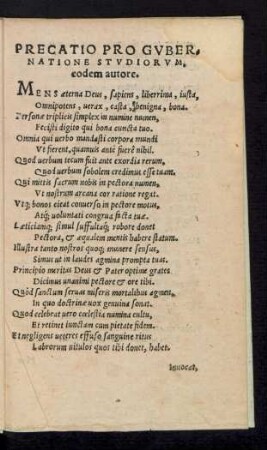 PRECATIO PRO GVBER,
NATIONE STVDIORVM,
eodem autore.
MENS æterna Deus, sapiens, liberrima, iusta,
Omnipotens, uerax, casta, benigna, bona.
Personæ triplicis simplex in numine numen,
Fecisti digito qui bona cuncta tuo.
Omnia qui uerbo mandasti corpora mundi
Vt fierent, quamuis ante fuere nihil.
Quod uerbum tecum fuit ante exordia rerum,
Quod uerbum sobolem credimus esse tuam.
Qui mittis sacrum nobis in pectora numen,
Vt nostrum arcana cor ratione regat.
Vtq; bonos cieat conuerso in pectore motus,
Atq; uoluntati congrua facta tuæ.
Læticiamq; simul suffultaq; robore donet
Pectora, & æqualem mentis habere statum.
Illustra tanto nostros quoq; munere sensus,
Simus ut in laudes agmina prompta tuas.
Principio meritas Deus & Pater optime grates
Dicimus unanimi pectore & ore tibi.
Quòd sanctum seruas miseris mortalibus agmen,
In quo doctrinæ uox genuina sonat.
Quod celebrat uero cœlestia numina cultu,
Et retinet iunctam cum pietate fidem.
Et negligens ueteres effuso sanguine ritus
Labrorum uitulos quos tibi donet, habet.
Inuocat,